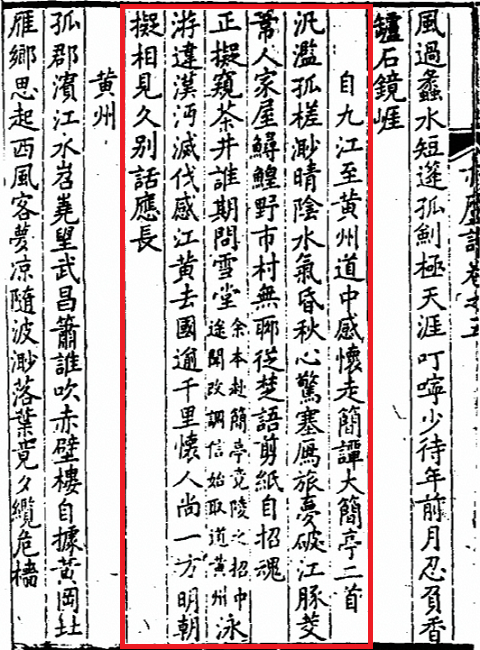 風過蠡水短篷孤劍極天涯叮嚀少待年前月忍負香
鑪石鏡崕
自九江至黃州道中感懷走簡譚大簡亭二首
汎濫孤槎渺晴陰水氣昏秋心驚塞鴈旅夢破江豚茭
葦人家屋鱘鰉野市村無聊從楚語剪紙自招魂
正擬窺茶井誰期問雪堂余本赴簡亭竟陵之招中途聞改調信始取道黃州泳
游違漢沔滅伐感江黃去國逾千里懷人尚一方明朝
擬相見久别話應長
黃州
孤郡濱江水岧嶤望武昌簫誰吹赤壁樓自據黃岡社
雁鄉思起西風客夢凉隨波渺落葉寛夕纜危檣